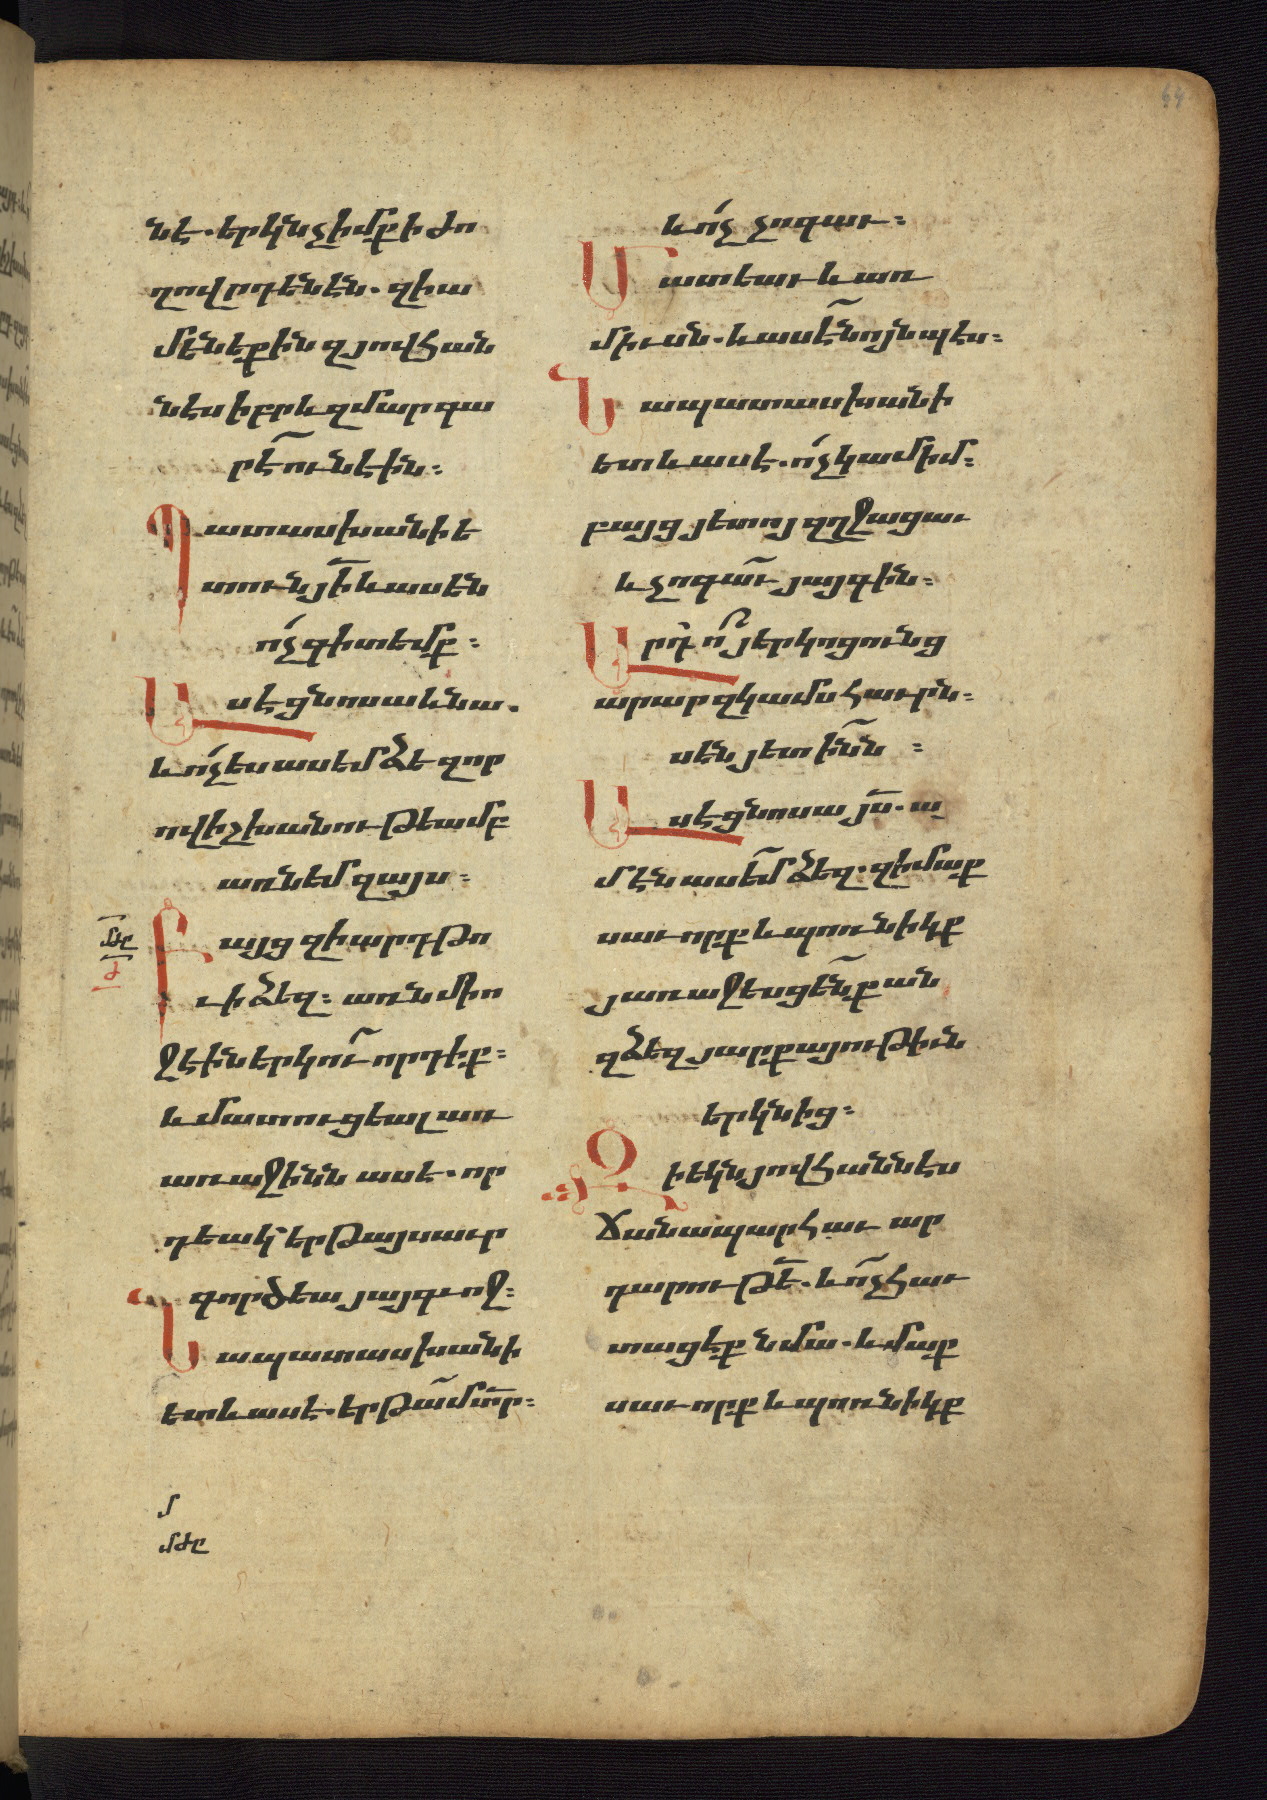 64
նէ. երկնչիմք ի ժո
ղովրդենէն. զի ա
մենեքին զյովհան
նէս իբրև զմարգա
րէ̄ ունէին։
Պատասխանի ե
տուն յ̄ի և ասեն
ո՛չ գիտեմք։
Ասէ ցնոսա և նա.
և ո՛չ ես ասեմ ձեզ որ
ով իշխանութեամբ
առնեմ զայս։
Բայց զիարդ թո
ւի ձեզ։ առն միո
ջ էին երկու որդիք։
և մատուցեալ առ
առաջինն ասէ. որ
դեակ երթ այսաւր
գործեա յայգւոջ։
Նա պատասխանի
ետ և ասէ. երթամ տ̄ր։
մ
մժը
մժը
ժ
և ո՛չ չոգաւ։
Մատեաւ և առ
միւսն. և ասէ նոյնպէս։
Նա պատասխանի
ետ և ասէ. ո՛չ կամիմ։
բայց յետոյ զղջացաւ
և չոգաւ յայգին։
Արդ ո՞ յերկոցունց
արար զկամս հաւրն։
ասեն յետինն ։
Ասէ ցնոսա յ̄ս. ա
մէն ասեմ ձեզ. զի մաք
սաւորք և պոռնիկք
յառաջեսցեն քան
զձեզ յարքայութիւն
երկնից։
Զի եկն յովհաննէս
ճանապարհաւ ար
դարութե̄. և ո՛չ հաւ
տացեք նմա. և մաք
սաւորք և պոռնիկք